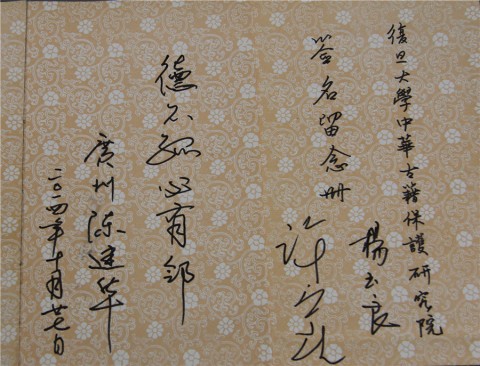 復旦大學中華古籍保護研究院
楊玉良
簽名留念册
德不孤必有鄰
廣州陳建華
二〇一四年十月廿七日